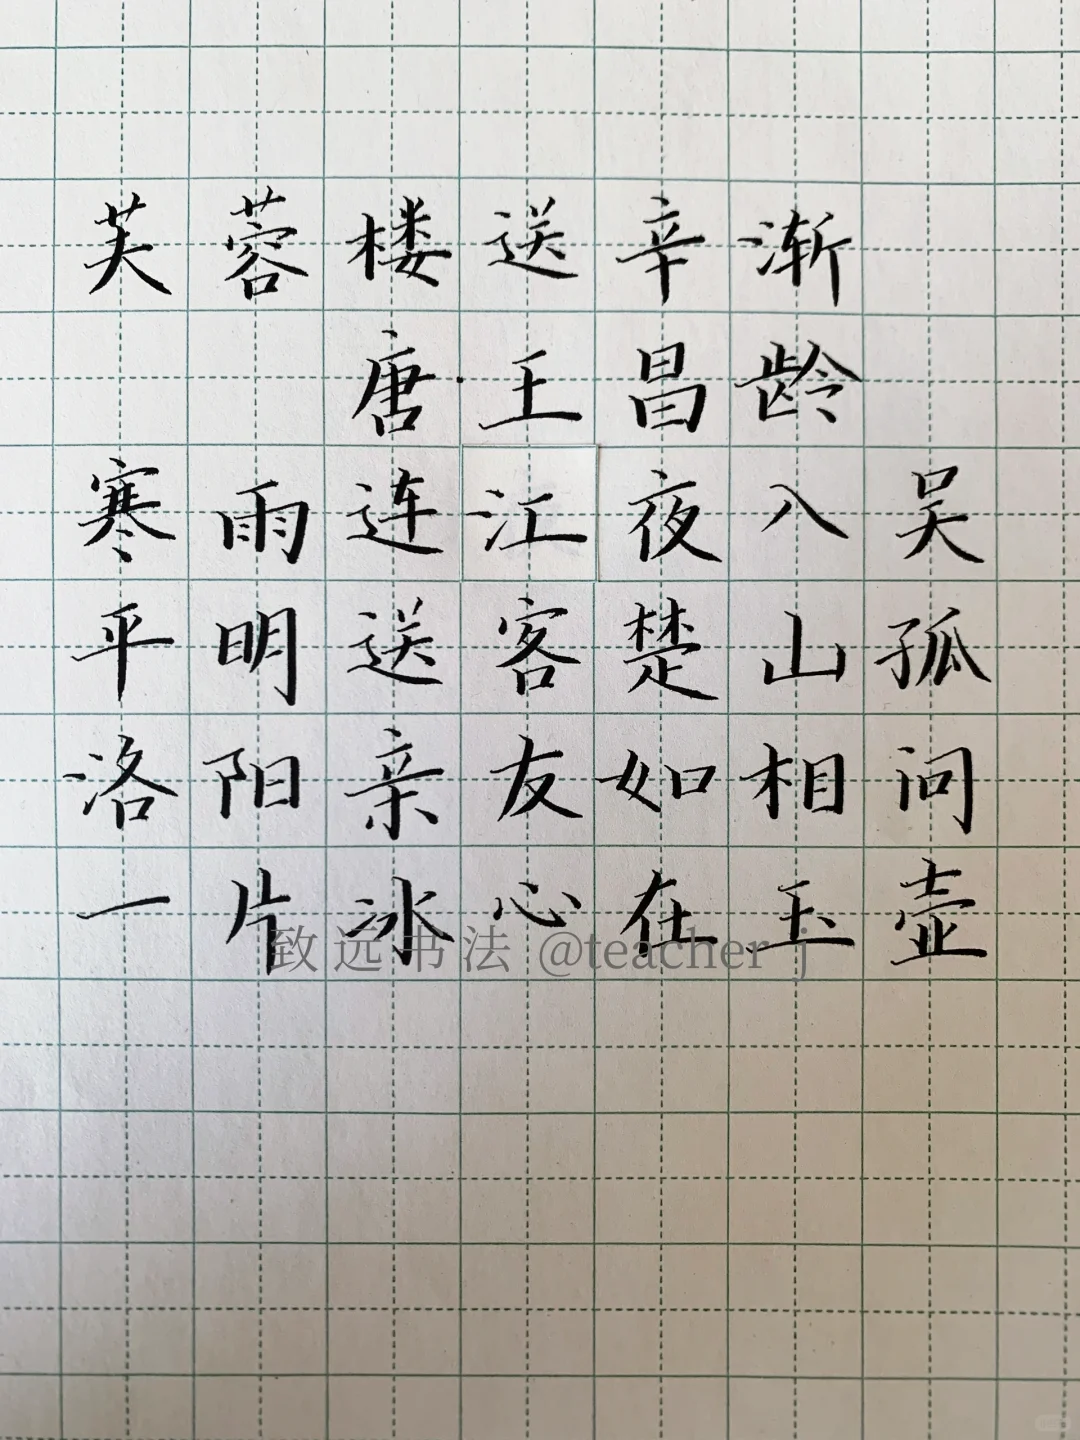 芙蓉楼送辛渐
唐·王昌龄
寒雨连江夜入吴
平明送客楚山孤
洛阳亲友如相问
一片冰心在玉壶
致远书法 @teacher j